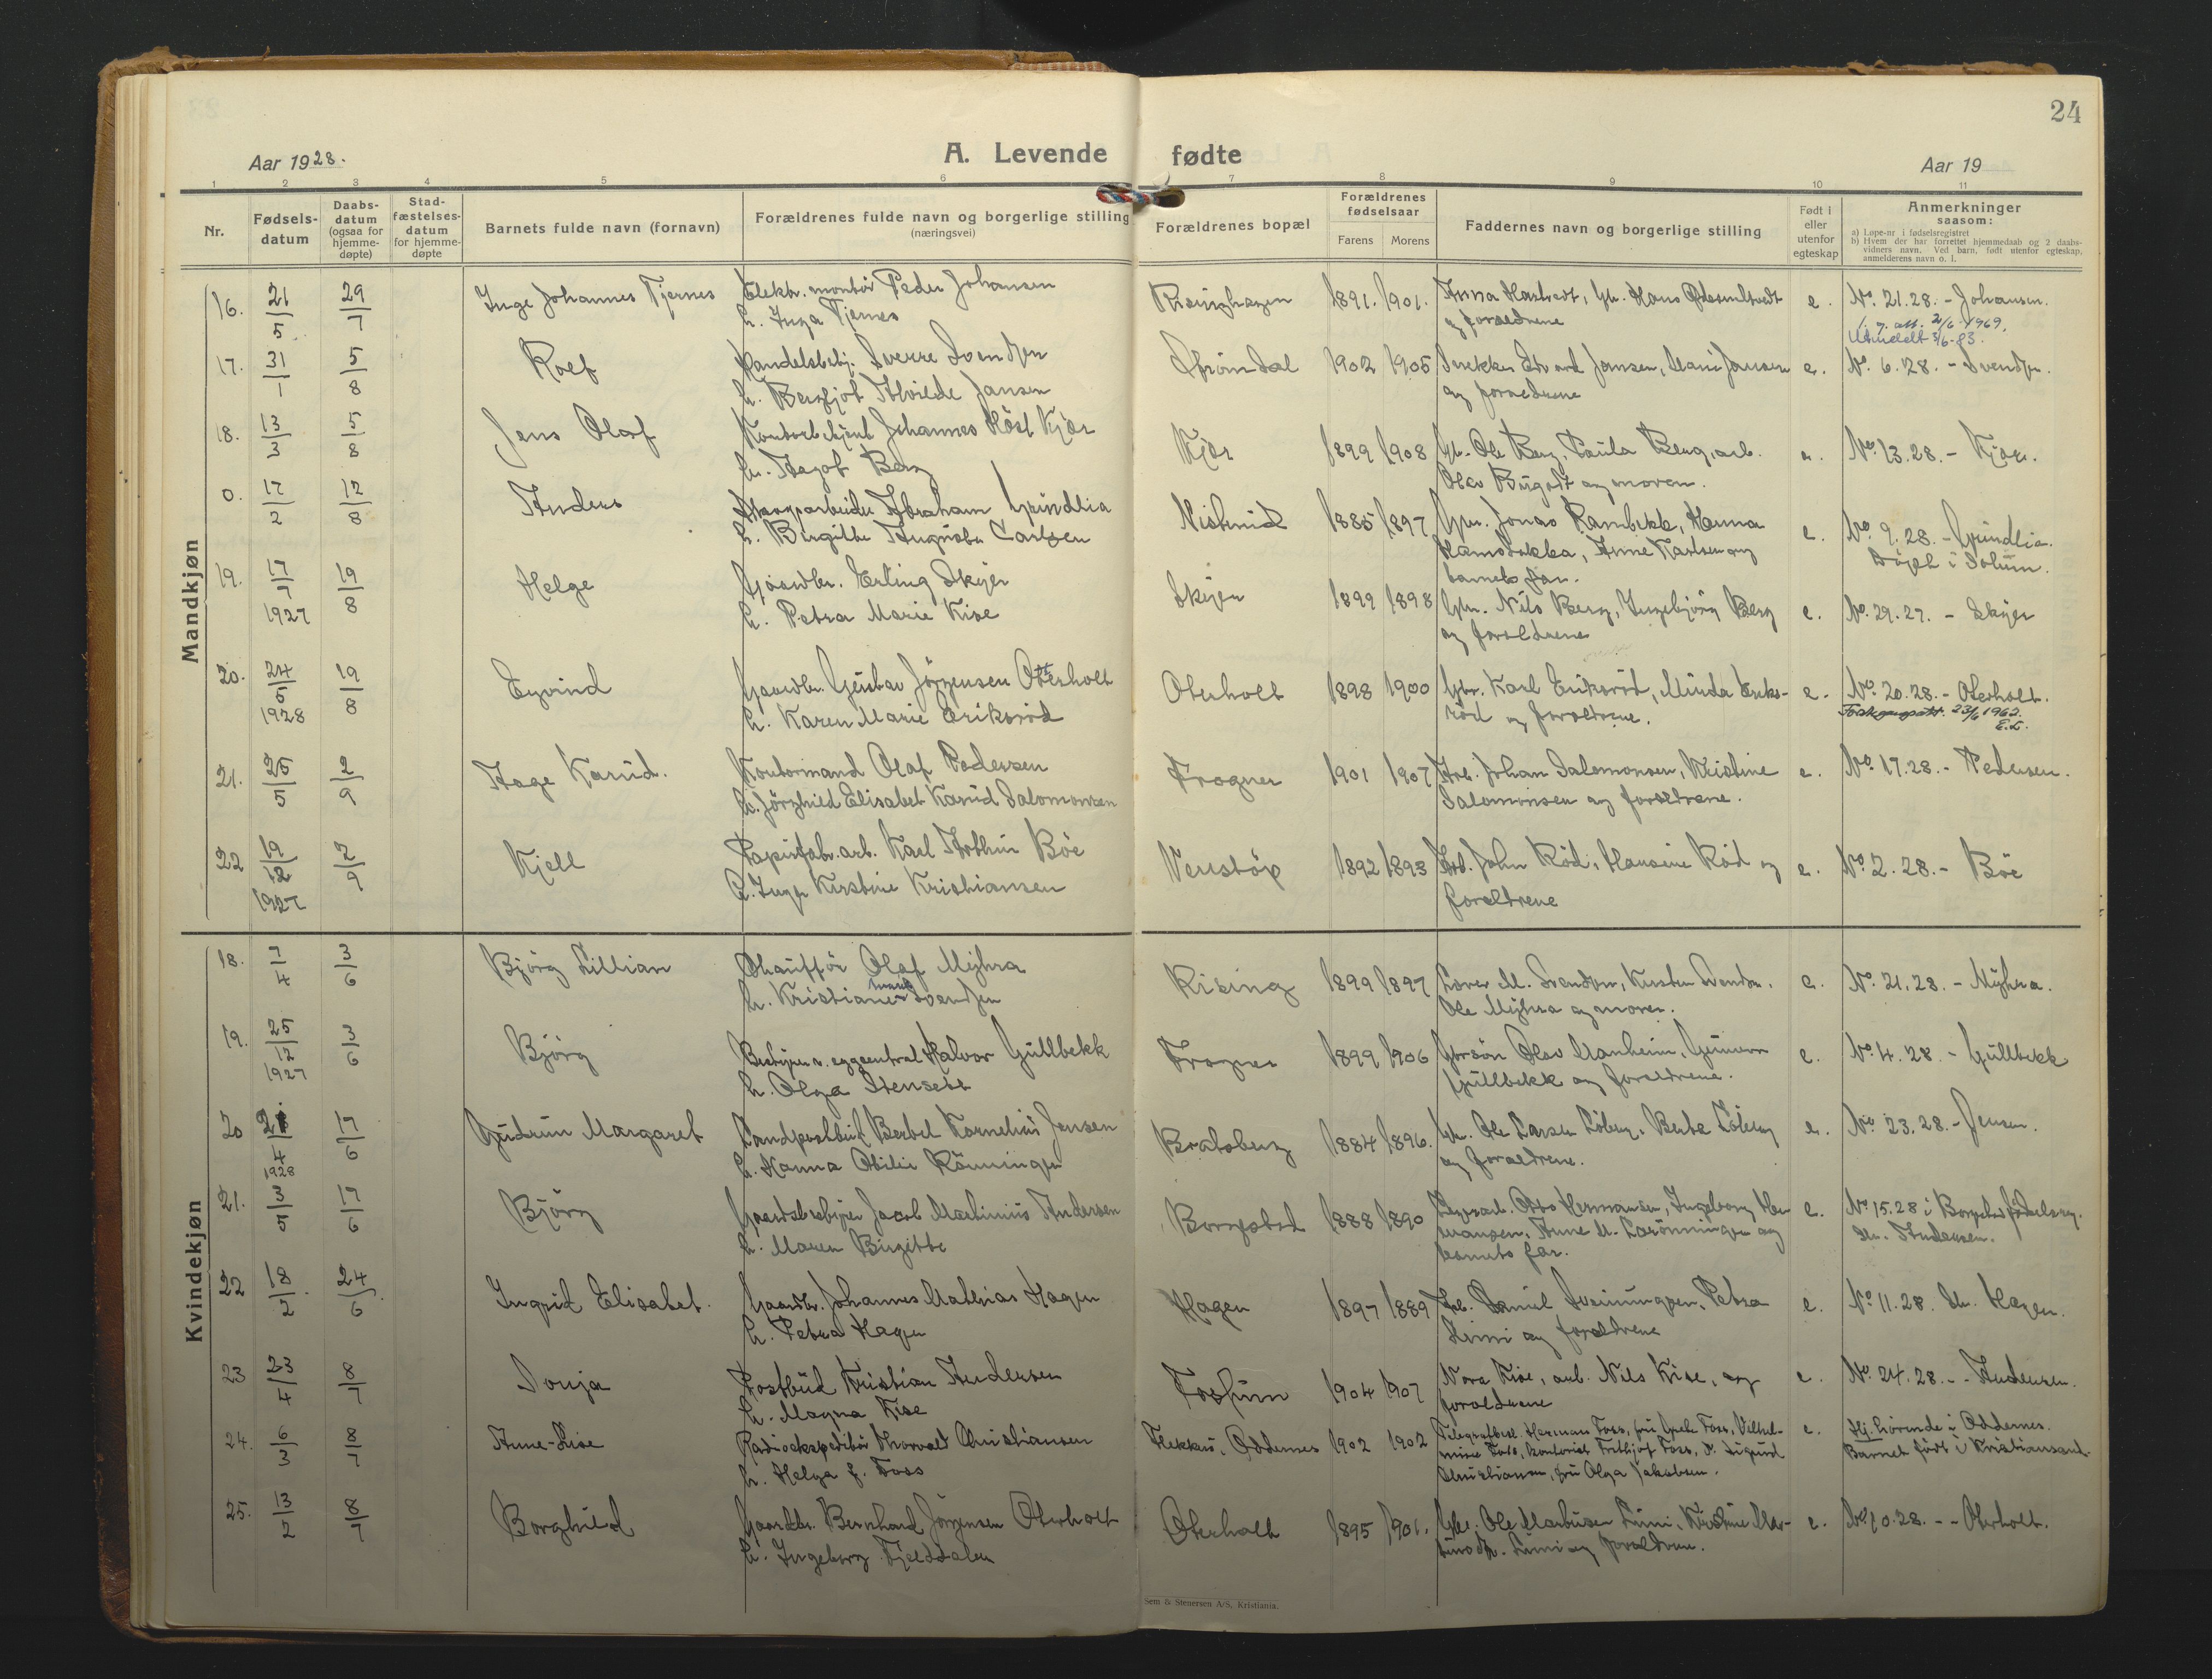 24
Aar 1928.
A. Levende fødte
Aar 19
1 2 3 4 5 6 7 8 9 10 11
Nr.
Fødsels-
datum
Daabs-
datum
(ogsaa for
hjemme-
døpte)
Stad-
fæstelses-
datum
for hjemme-
døpte
Barnets fulde navn (fornavn)
Forældrenes fulde navn og borgerlige stilling
(næringsvei)
Forældrenes bopæl
Forældrenes
fødselsaar
Farens Morens
Faddernes navn og borgerlige stilling
Født i
eller
utenfor
egteskap
Anmerkninger
saasom:
a) Løpe-nr i fødselsregistret
b) Hvem der har forrettet hjemmedaab og 2 daabs-
vidners navn. Ved barn, født utenfor egteskap,
anmelderens navn o. l.
Mandkjøn
16. 21/5 29/7 Inge Johannes Tjernes Elektr. montör Peder Johansen 1891. 1901. Anna Gbr. Hans e. No. 21.28. - Johansen.
h. Inga Tjernes og forældrene 2/6 1969.
Utmeldt 3/6-83.
17. 31/1 5/8 Rolf Handelsbetj. Sverre Svendsen Strömdal 1902 1905 Snekker Edvard Jansen, Marie Jansen e. No. 6.28. - Svendsen.
h. Bergljot Alvilde Jansen og forældrene
18. 13/3 5/8 Jens Olaf Kontorbetjent Johannes Höst Kjær Kjær 1899 1908 Gbr. Ole Berg, Paula Berg, arb. e. No. 13.28. - Kjær.
h. Aagot Berg og moren.
0. 17/2 12/8 Anders Skogsarbeider Abraham Grindlia 1885 1897 Gbr. Jonas Rambekk, Hanna e. No. 9.28. - Grindlia.
h. Birgitte Augusta Carlsen Anne Karlsen og Döpt i Solum.
barnets far.
19. 17/7 1927 19/8 Helge Gaardbr. Erling Skyer Skyer 1899 1898 Gbr. Nils Berg, Ingebjörg Berg e. No. 29.27. - Skyer
h. Petra Marie Kise og forældrene
20. 24/5 1928 19/8 Eyvind Gaardbr. Gustav Jörgensen Oterholt Oterholt 1898 1900 Gbr. Karl Eriksröd, Minda Eriks- e. No. 20.28. - Oterholt.
h. Karen Marie Eriksröd röd og forældrene. 23/6 1962.
E.L.
21. 25/5 2/9 Aage Karud. Kontormand Olaf Pedersen Frogner 1901 1907 Arb. Johan Salomonsen, Kristine e. No. 17.28. - Pedersen.
h. Jörghild Elisabet Karud Salomonsen Salomonsen og forældrene.
22 19/12 1927 2/9 Kjell Papirfabr. arb. Karl Arthur Böe Venstöp 1892 1893 Arb. John Röd, Hansine Röd og e. No. 2.28. - Böe
h. Inga Kirstine Kristiansen forældrene
Kvindekjøn
18. 7/4 3/6 Björg Lillian Chaufför Olaf Myhra Rising 1899 1897 Lærer M. Svendsen, Kirsten Svendsen, e. No. 21.28. - Myhra.
h. Kristiane Svendsen Ole Myhra og moren.
19. 25/12 1927 3/6 Björg Bestyrer v. eggcentral Halvor Gullbekk Frogner 1899 1906 Olav Manheim, Gunvor e. No. 4.28. - Gullbekk
h. Olga Stenseth Gullbekk og forældrene.
20 21/4 1928 17/6 Gudrun Margaret Landpostbud Bertel Kornelius Jensen Bratsberg 1884 1896. Gbr. Ole Larsen Löberg, Berte Löberg e. No. 23.28. - Jensen.
h. Hanna Otilie Rönningen og forældrene.
21. 3/5 17/6 Björg Gaardsbestyrer Jacob Martinius Andersen Borgestad 1888 1890 Otto Hermansen, Ingeborg Her- e. No. 15.28 i Borgestad födselsreg.
h. Maren Birgitte mansen, Anne M. og Andersen.
barnets far.
22 18/2 24/6 Ingrid Elisabet. Gaardbr. Johannes Mathias Hagen Hagen 1897 1889 Arb. Daniel Petra e. No. 11.28. Hagen.
h. Petra Hagen og forældrene
23 23/4 8/7 Sonja Postbud Kristian Andersen Fossum 1904 1907 Nora Kise, arb. Nils Kise, og e. No. 24.28. - Andersen.
h. Magna Kise forældrene
24. 6/3 8/7 Anne-Lise Radioekspeditör Thorvald Christiansen Flekkerö, Oddernes 1902 1902 Telegrafbest. Herman Foss, fru Foss, Vilhel- e. Hj. hörende i Oddernes.
h. Helga f. Foss mine Foss, kontorist Frithjof Foss, Sigurd Barnet födt i Kristiansand.
Christiansen, fru Olga Jakobsen.
25. 13/2 8/7 Borghild Gaardbr. Bernhard Jörgensen Oterholt Oterholt 1895 1901. Gbr. Ole Markusen Limi, Kristine e. No. 10.28. - Oterholt.
h. Ingeborg Fjelddalen Limi og forældrene.
Sem & Stenersen A/S, Kristiania.